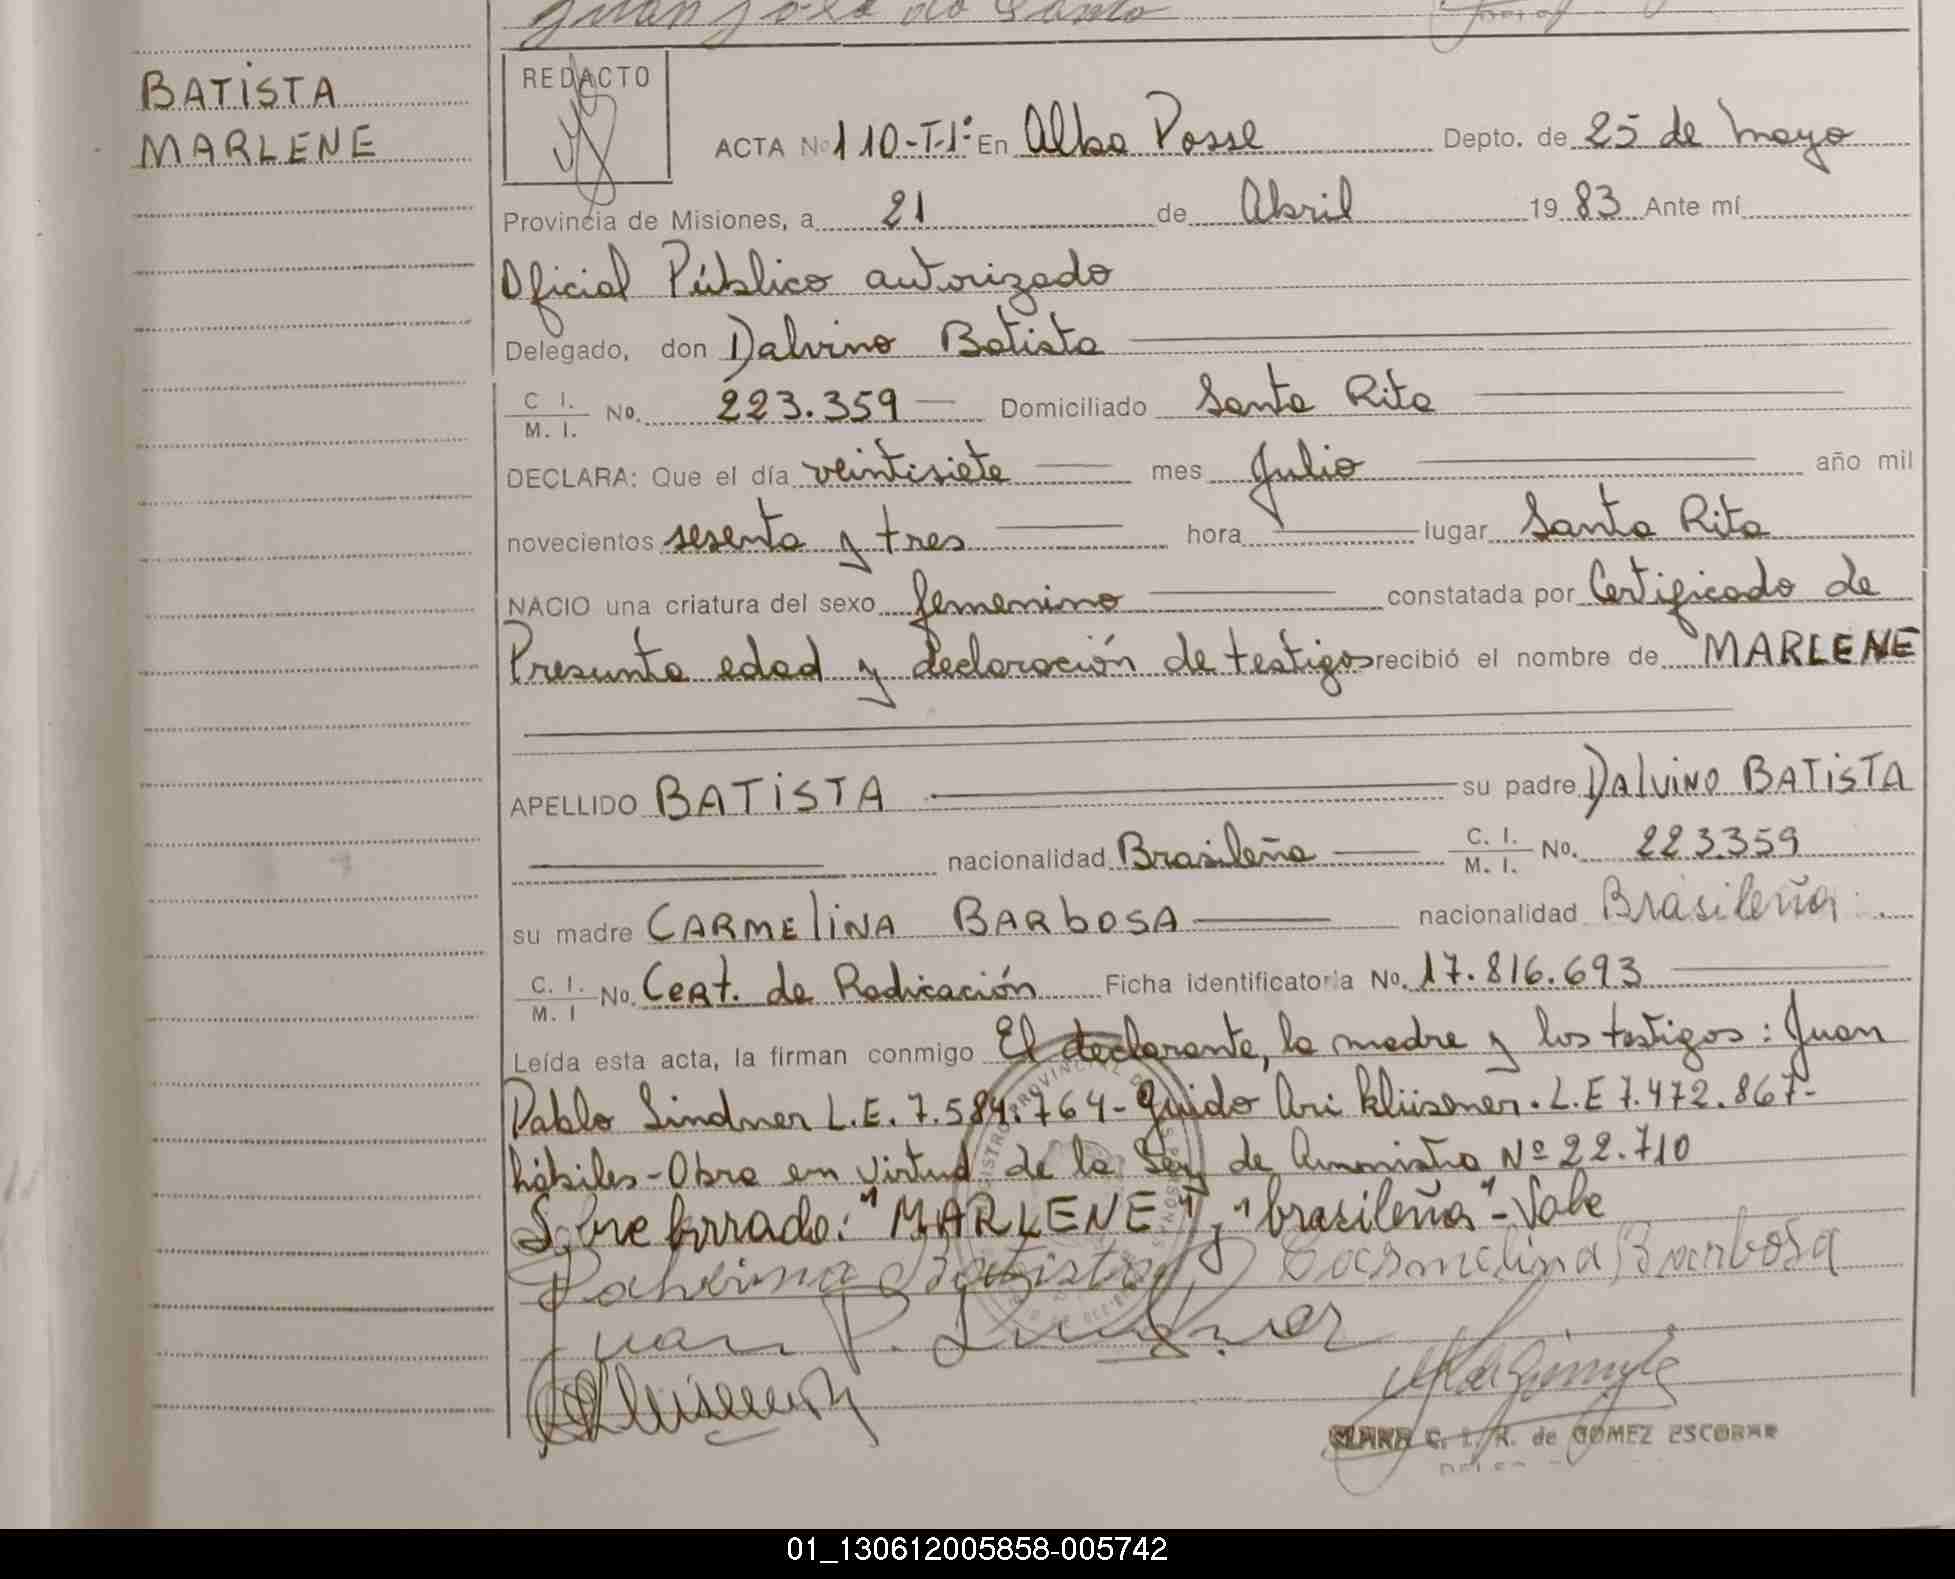 BATISTA
MARLENE
REDACTO
ACTA Nº 110-T-1º En Alba Posse Depto. de 25 de Mayo
Provincia de Misiones, a 21 de Abril 19 83 Ante mí
Oficial Público autorizado
Delegado, don Dalvino Batista
C I. / M. I. No. 223.359 Domiciliado Santa Rita
DECLARA: Que el día veintisiete mes Julio año mil
novecientos sesenta y tres hora lugar Santa Rita
NACIO una criatura del sexo femenino constatada por Certificado de
Presunta edad y declaración de testigos recibió el nombre de MARLENE
APELLIDO BATISTA su padre DALVINO BATISTA
nacionalidad Brasileña C. I. / M. I. No. 223.359
su madre CARMELINA BARBOSA nacionalidad Brasileña
C. I. / M. I No. Cert. de Radicación Ficha identificatoria No. 17.816.693
Leída esta acta, la firman conmigo El declarante, la madre y los testigos: Juan
Pablo Lindner L.E. 7.584.764- Guido Ari Klüsener. L.E 7.472.867-
hábiles-Obra en virtud de la Ley de Amnistía Nº 22.710
Sobre borrado: "MARLENE", "brasileña"-Vale
Dalvino Batista Carmelina Barbosa
Juan P. Lindner
CLARA C. I. R. de GOMEZ ESCOBAR
01_130612005858-005742